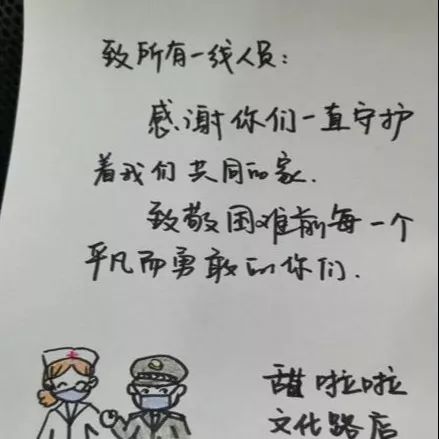 致所有一线人员:
感谢你们一直守护
着我们共同的家.
致敬困难前每一个
平凡而勇敢的你们.
甜啦啦
文化路店